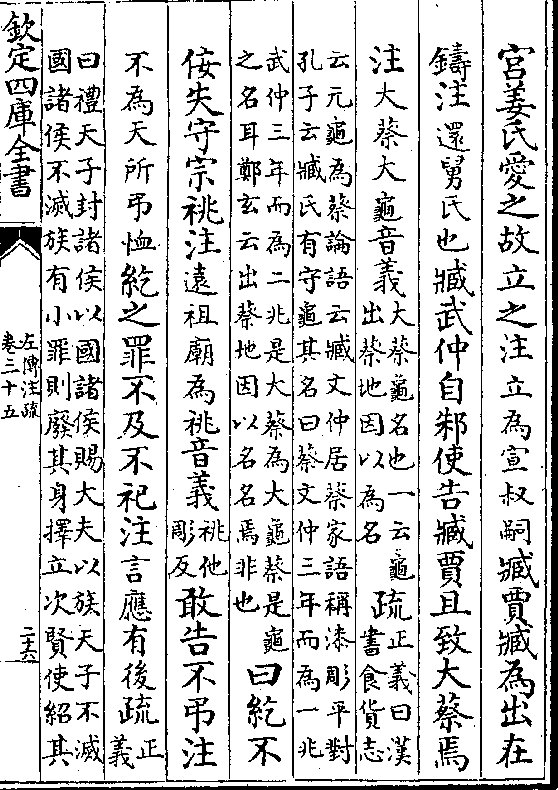 宮姜氏愛之故立之注立為宣叔嗣臧賈臧為出在
鑄注還舅氏也臧武仲自邾使告臧賈且致大蔡焉
注大蔡大龜音義
大蔡龜名也一云龜
出蔡地因以為名
疏
正義曰漢
書食貨志
云元龜為蔡論語云臧文仲居蔡家語稱漆彫平對
孔子云臧氏有守龜其名曰蔡文仲三年而為一兆
武仲三年而為二兆是大蔡為大龜蔡是龜
之名耳鄭玄云出蔡地因以名名焉非也
曰紇不
佞失守宗祧注遠祖廟為祧音義
祧他
彫反
敢告不弔注
不為天所弔恤紇之罪不及不祀注言應有後疏
正
義
曰禮天子封諸侯以國諸侯賜大夫以族天子不滅
國諸侯不滅族有小罪則廢其身擇立次賢使紹其
欽定四庫全書
左傳注疏
卷三十五
二十六